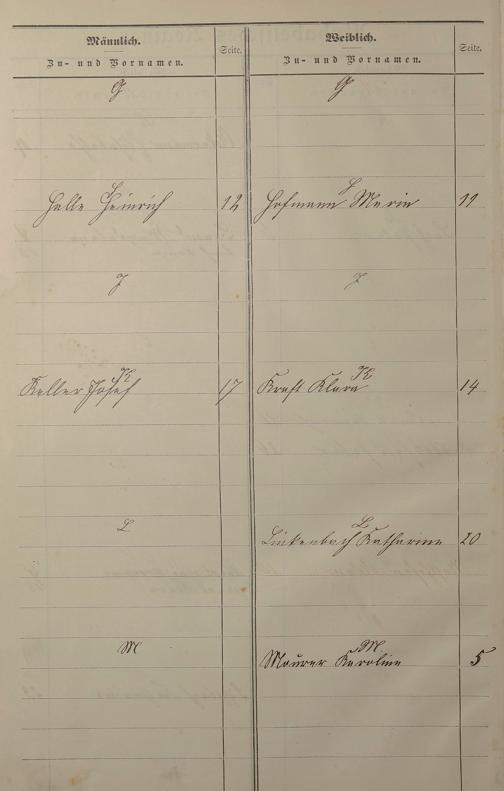 Männlich.
Zu- und Vornamen.
Seite.
Weiblich.
Zu- und Vornamen.
Seite.
G
G
H
H
Halle Heinrich 12
Hofmann Marie 11
J
J
K
K
Keller Josef 17
Kraft Klara 14
L
L
Lückenbach Katharine 20
M
M
Maurer Karoline 5